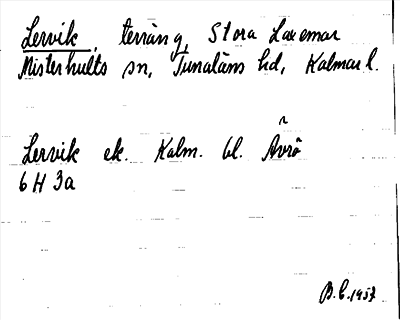 Lervik, terräng, Stora Laxemar
Misterhults sn, Tunaläns hd, Kalmar l.
Lervik ek. Kalm. bl. Ävrö
6H 3a
B.C. 1957